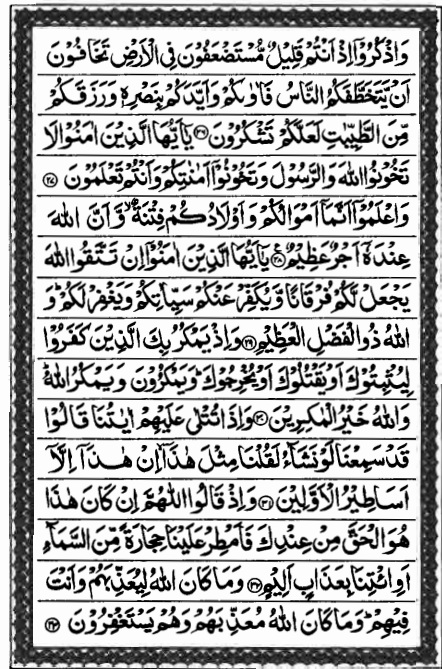 وَاذْكُرُوْٓا اِذْ اَنْتُمْ قَلِيْلٌ مُّسْتَضْعَفُوْنَ فِى الْاَرْضِ تَخَافُوْنَ
اَنْ يَّتَخَطَّفَكُمُ النَّاسُ فَاٰوٰىكُمْ وَاَيَّدَكُمْ بِنَصْرِهٖ وَرَزَقَكُمْ
مِّنَ الطَّيِّبٰتِ لَعَلَّكُمْ تَشْكُرُوْنَ ۝۲۶ يٰٓاَيُّهَا الَّذِيْنَ اٰمَنُوْا لَا
تَخُوْنُوا اللّٰهَ وَالرَّسُوْلَ وَتَخُوْنُوْٓا اَمٰنٰتِكُمْ وَاَنْتُمْ تَعْلَمُوْنَ ۝۲۷
وَاعْلَمُوْٓا اَنَّمَآ اَمْوَالُكُمْ وَاَوْلَادُكُمْ فِتْنَةٌ ۙ وَّاَنَّ اللّٰهَ
عِنْدَهٗٓ اَجْرٌ عَظِيْمٌ ۝۲۸ يٰٓاَيُّهَا الَّذِيْنَ اٰمَنُوْٓا اِنْ تَتَّقُوا اللّٰهَ
يَجْعَلْ لَّكُمْ فُرْقَانًا وَّيُكَفِّرْ عَنْكُمْ سَيِّاٰتِكُمْ وَيَغْفِرْ لَكُمْ ؕ وَ
اللّٰهُ ذُو الْفَضْلِ الْعَظِيْمِ ۝۲۹ وَاِذْ يَمْكُرُ بِكَ الَّذِيْنَ كَفَرُوْا
لِيُثْبِتُوْكَ اَوْ يَقْتُلُوْكَ اَوْ يُخْرِجُوْكَ ؕ وَيَمْكُرُوْنَ وَيَمْكُرُ اللّٰهُ ؕ
وَاللّٰهُ خَيْرُ الْمٰكِرِيْنَ ۝۳۰ وَاِذَا تُتْلٰى عَلَيْهِمْ اٰيٰتُنَا قَالُوْا
قَدْ سَمِعْنَا لَوْ نَشَآءُ لَقُلْنَا مِثْلَ هٰذَآ ۙ اِنْ هٰذَآ اِلَّآ
اَسَاطِيْرُ الْاَوَّلِيْنَ ۝۳۱ وَاِذْ قَالُوا اللّٰهُمَّ اِنْ كَانَ هٰذَا
هُوَ الْحَقَّ مِنْ عِنْدِكَ فَاَمْطِرْ عَلَيْنَا حِجَارَةً مِّنَ السَّمَآءِ
اَوِ ائْتِنَا بِعَذَابٍ اَلِيْمٍ ۝۳۲ وَمَا كَانَ اللّٰهُ لِيُعَذِّبَهُمْ وَاَنْتَ
فِيْهِمْ ؕ وَمَا كَانَ اللّٰهُ مُعَذِّبَهُمْ وَهُمْ يَسْتَغْفِرُوْنَ ۝۳۳